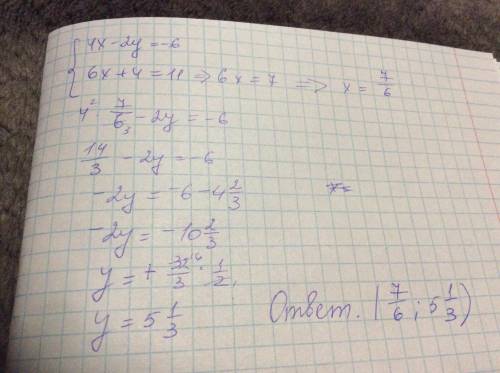 {4x - 2y = -6
6x + 4 = 11 => 6x = 7 => x = 7/6
4² · 7/6₃ - 2y = -6
14/3 - 2y = -6
-2y = -6 - 4 2/3
-2y = -10 2/3
y = + 32¹⁶/3 · 1/2₁
y = 5 1/3
Ответ. (7/6 ; 5 1/3)